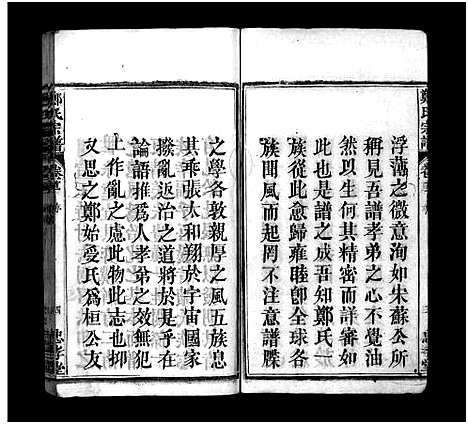 鄭氏宗譜
浮薄之微意洵如朱蘇公所
稱見吾譜孝弟之心不覺油
然以生何其精密而詳審如
此也是譜之成吾知鄭氏一
族從此愈歸雍睦卽全球各
族聞風而起罔不注意譜牒
之學各敦親厚之風五族息
其乖張太和翔於宇宙國家
撥亂返治之道將於是乎在
論語推爲人孝弟之效無犯
上作亂之慮此物此志也抑
又思之鄭始受氏爲桓公友
鄭氏宗譜
忠孝堂